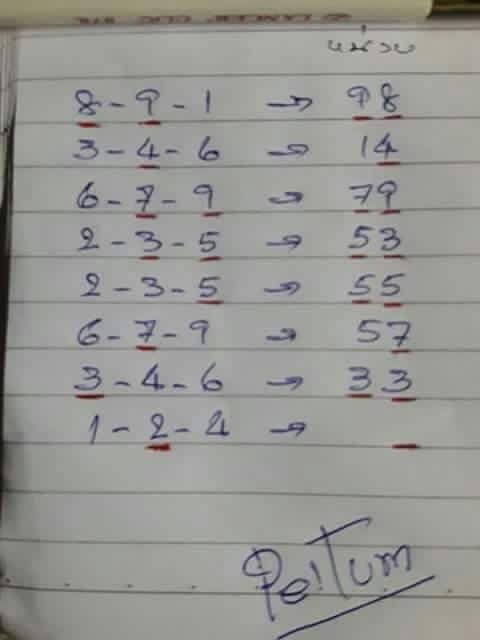 8 - 9 - 1 → 98
3 - 4 - 6 → 14
6 - 7 - 9 → 79
2 - 3 - 5 → 53
2 - 3 - 5 → 55
6 - 7 - 9 → 57
3 - 4 - 6 → 33
1 - 2 - 4 →
PeiTum